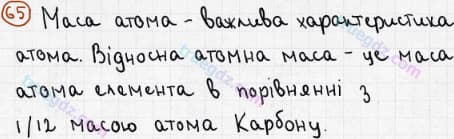 65 Маса атома - важлива характеристика
атома. Відносна атомна маса - це маса
атома елемента в порівнянні з
1/12 масою атома Карбону.